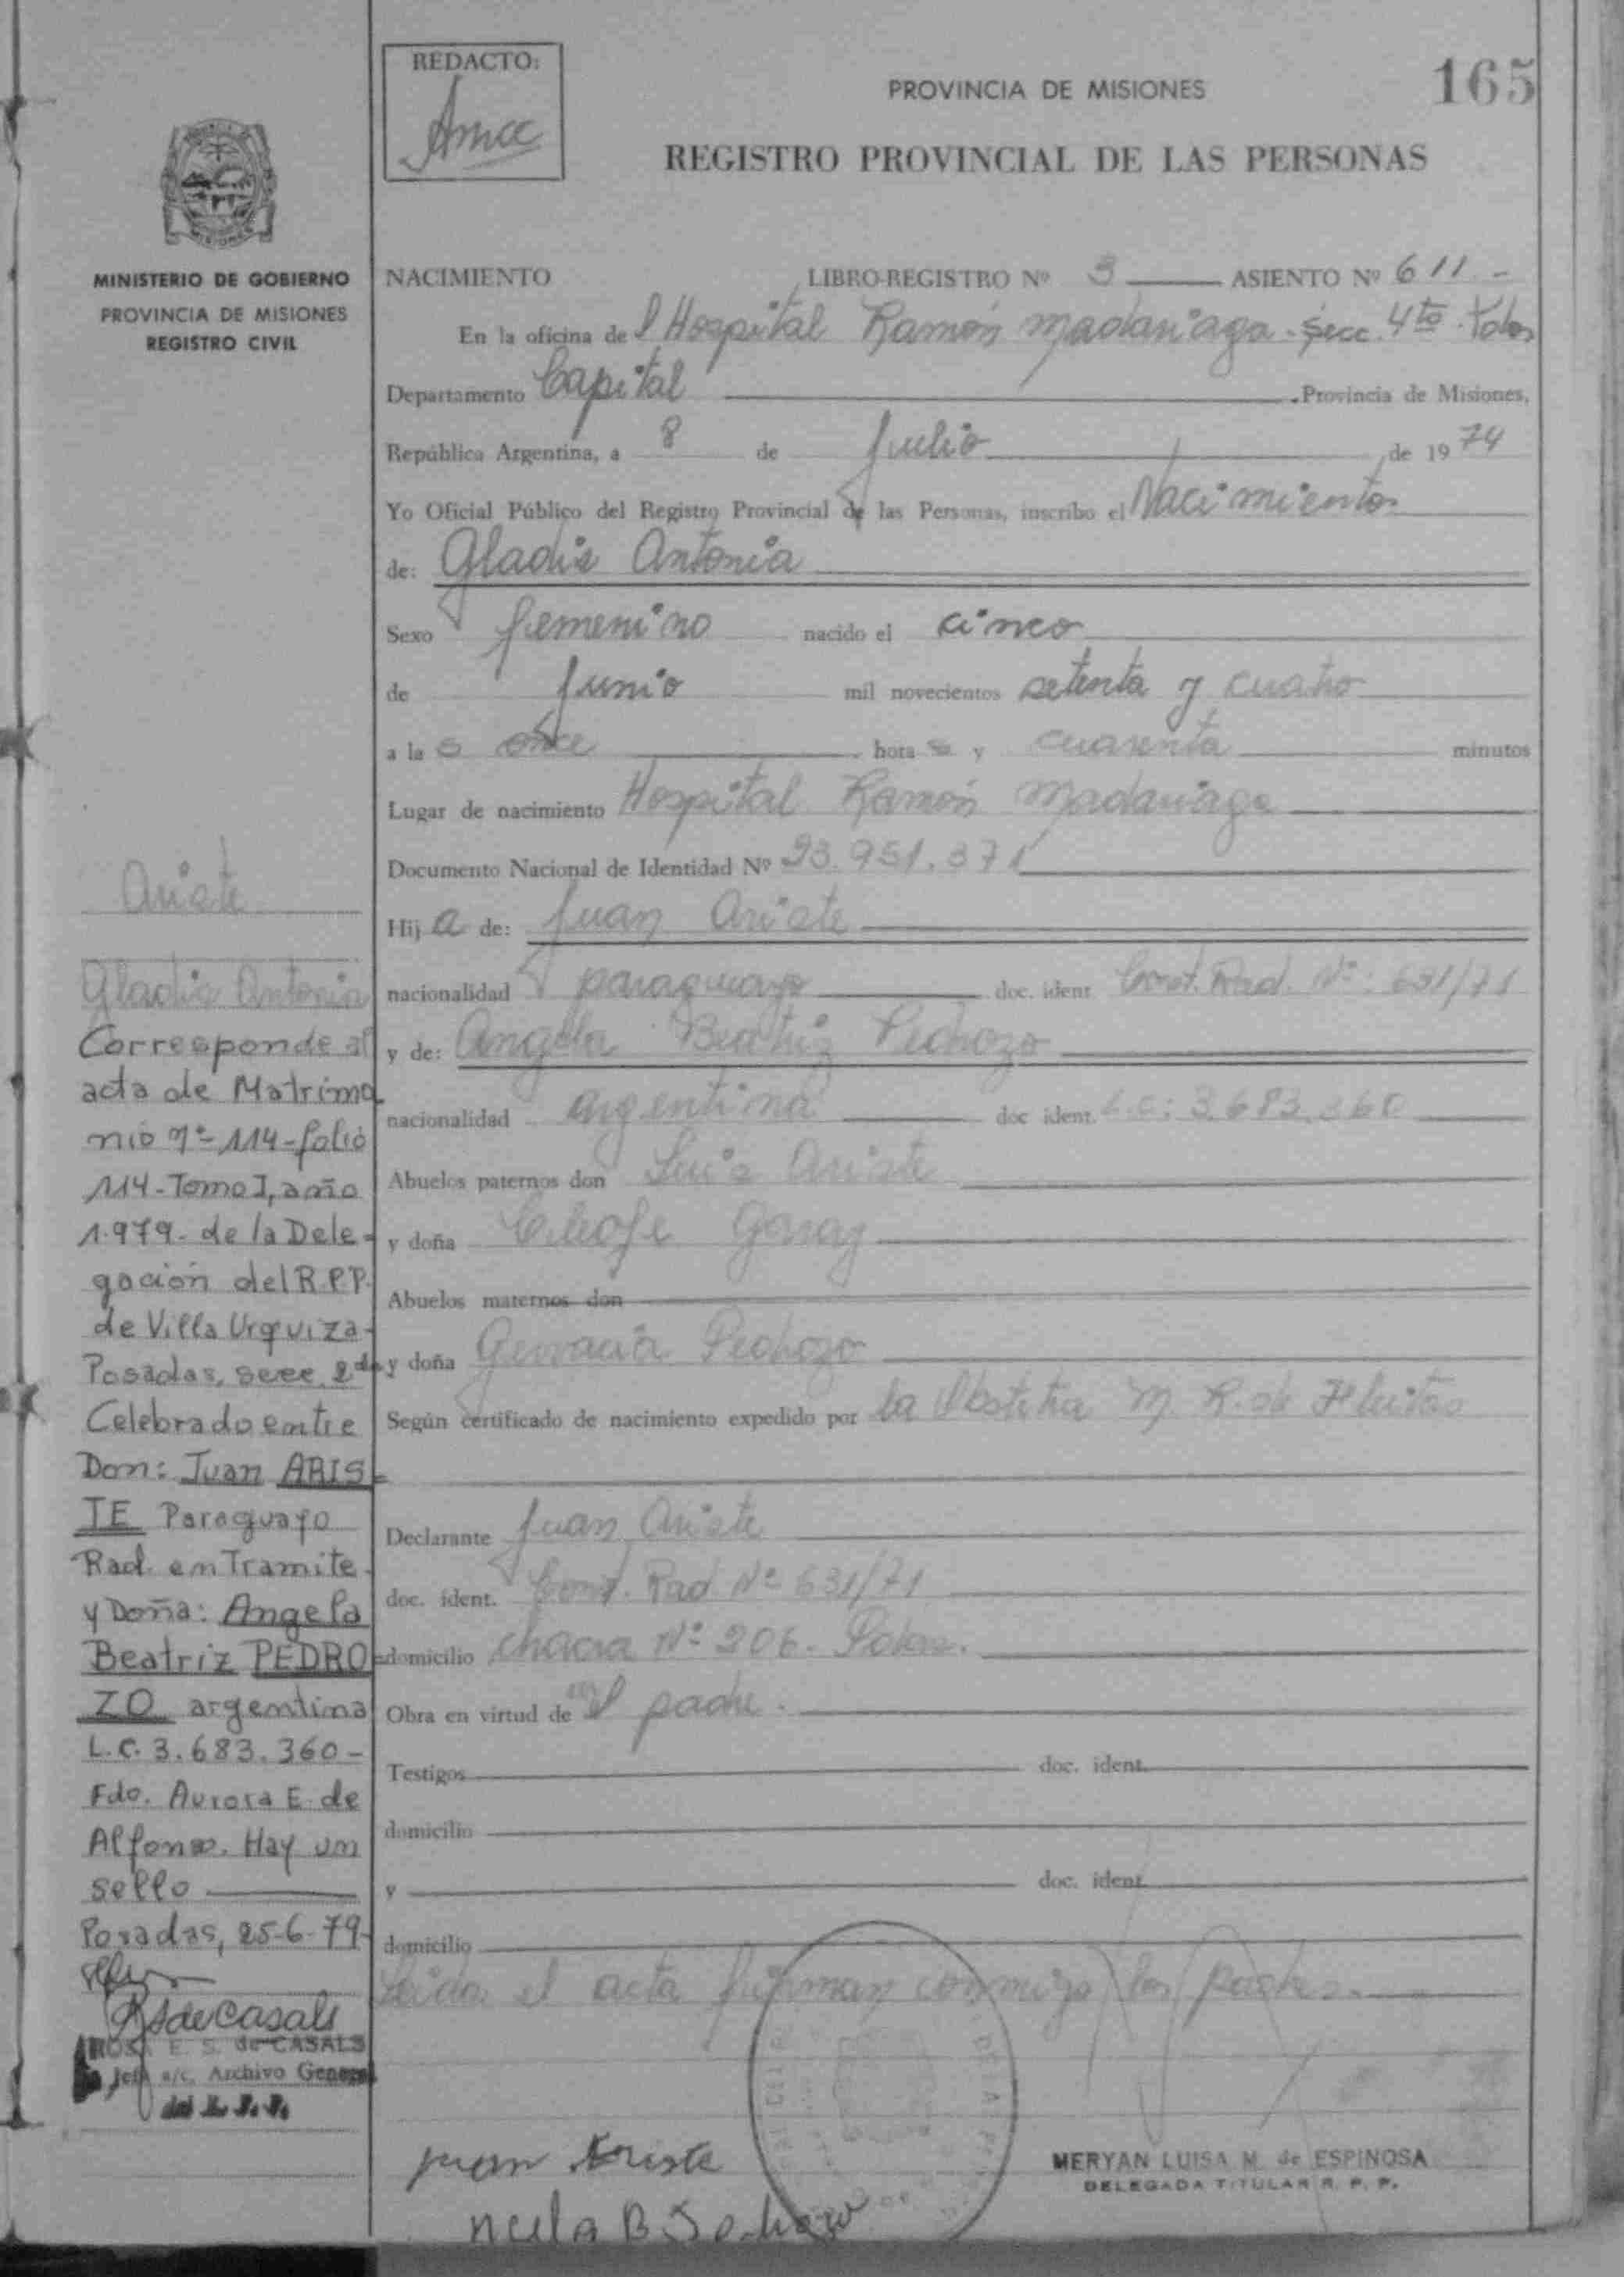 REDACTO:
PROVINCIA DE MISIONES
165
REGISTRO PROVINCIAL DE LAS PERSONAS
MISIONES
MINISTERIO DE GOBIERNO
PROVINCIA DE MISIONES
REGISTRO CIVIL
NACIMIENTO LIBRO-REGISTRO Nº 3 ASIENTO Nº 611 -
En la oficina de l Hospital Ramón Madariaga - Secc. 4ta
Departamento Capital Provincia de Misiones,
República Argentina, a 8 de Julio de 1974
Yo Oficial Público del Registro Provincial de las Personas, inscribo el Nacimiento
de: Gladis Antonia
Sexo femenino nacido el cinco
de junio mil novecientos setenta y cuatro
a las once horas y cuarenta minutos
Lugar de nacimiento Hospital Ramón Madariaga
Documento Nacional de Identidad Nº 23.951.371
Hija de: Juan Ariste
nacionalidad paraguayo doc. ident. Cont. Rad. Nº: 631/71
y de: Angela Beatriz Pedrozo
nacionalidad argentina doc ident. L.C: 3.683.360
Abuelos paternos don Luis Ariste
y doña Cleofe Garay
Abuelos maternos don
y doña Gervacia Pedrozo
Según certificado de nacimiento expedido por la Obstetra M. R. de Fleitas
Declarante Juan Ariste
doc. ident. Cont. Rad Nº 631/71
domicilio chacra Nº 206 - Pdas.
Obra en virtud de el padre.
Testigos doc. ident.
domicilio
y doc. ident.
domicilio
Leida el acta firman conmigo los padres.
Ariste
Gladis Antonia
Corresponde al
acta de Matrimo
nio nº 114-folio
114-Tomo I, año
1.979- de la Dele-
gación del R.P.P.
de Villa Urquiza-
Posadas, secc. 2da
Celebrado entre
Don: Juan ARIS=
TE Paraguayo
Rad. en Tramite.
y Doña: Angela
Beatriz PEDRO=
ZO argentina
L.C. 3.683.360-
Fdo. Aurora E. de
Alfonso. Hay un
sello
Posadas, 25-6-79-
RSdeCasals
ROSA E. S. de CASALS
Jefa a/c. Archivo General
del R. P. P.
Juan Ariste
MERYAN LUISA M. de ESPINOSA
DELEGADA TITULAR R. P. P.